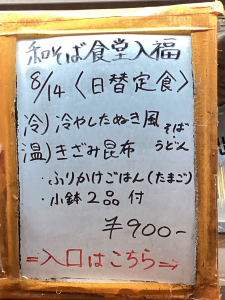 和そば食堂入福
8/14〈日替定食〉
冷)冷やしたぬき風
そば・
温)きざみ昆布 うどん
・ふりかけごはん(たまご)
・小鉢2品付
¥900-
=入口はこちら⇒